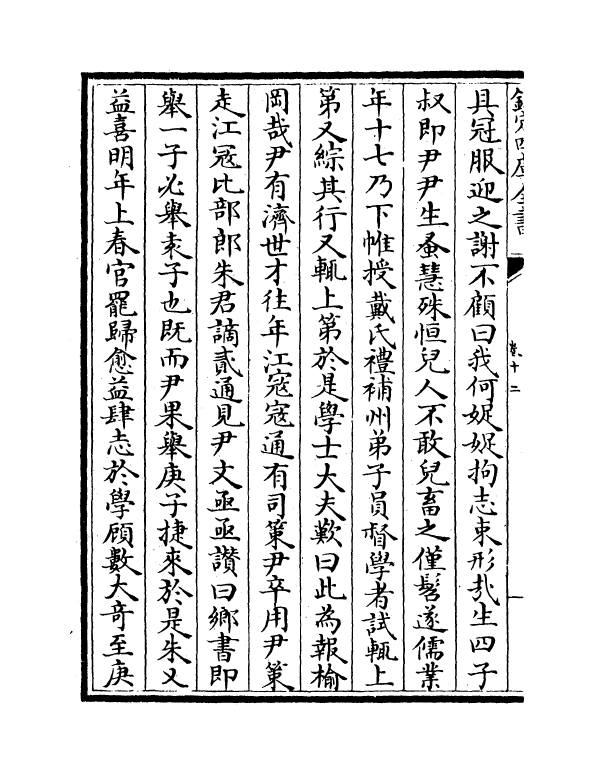 欽定四庫全書
卷十二
具冠服迎之謝不顧曰我何娖娖拘志束形㢤生四子
叔即尹尹生蚤慧殊恒兒人不敢兒畜之僅髫遂儒業
年十七乃下帷授戴氏禮補州弟子員督學者試輒上
第又綜其行又輒上第於是學士大夫歎曰此為報榆
岡哉尹有濟世才往年江寇寇通有司策尹卒用尹策
走江寇比部郎朱君謫貳通見尹文亟亟讃曰鄉書即
舉一子必舉袁子也既而尹果舉庚子捷來於是朱又
益喜明年上春官罷歸愈益肆志於學顧數大奇至庚